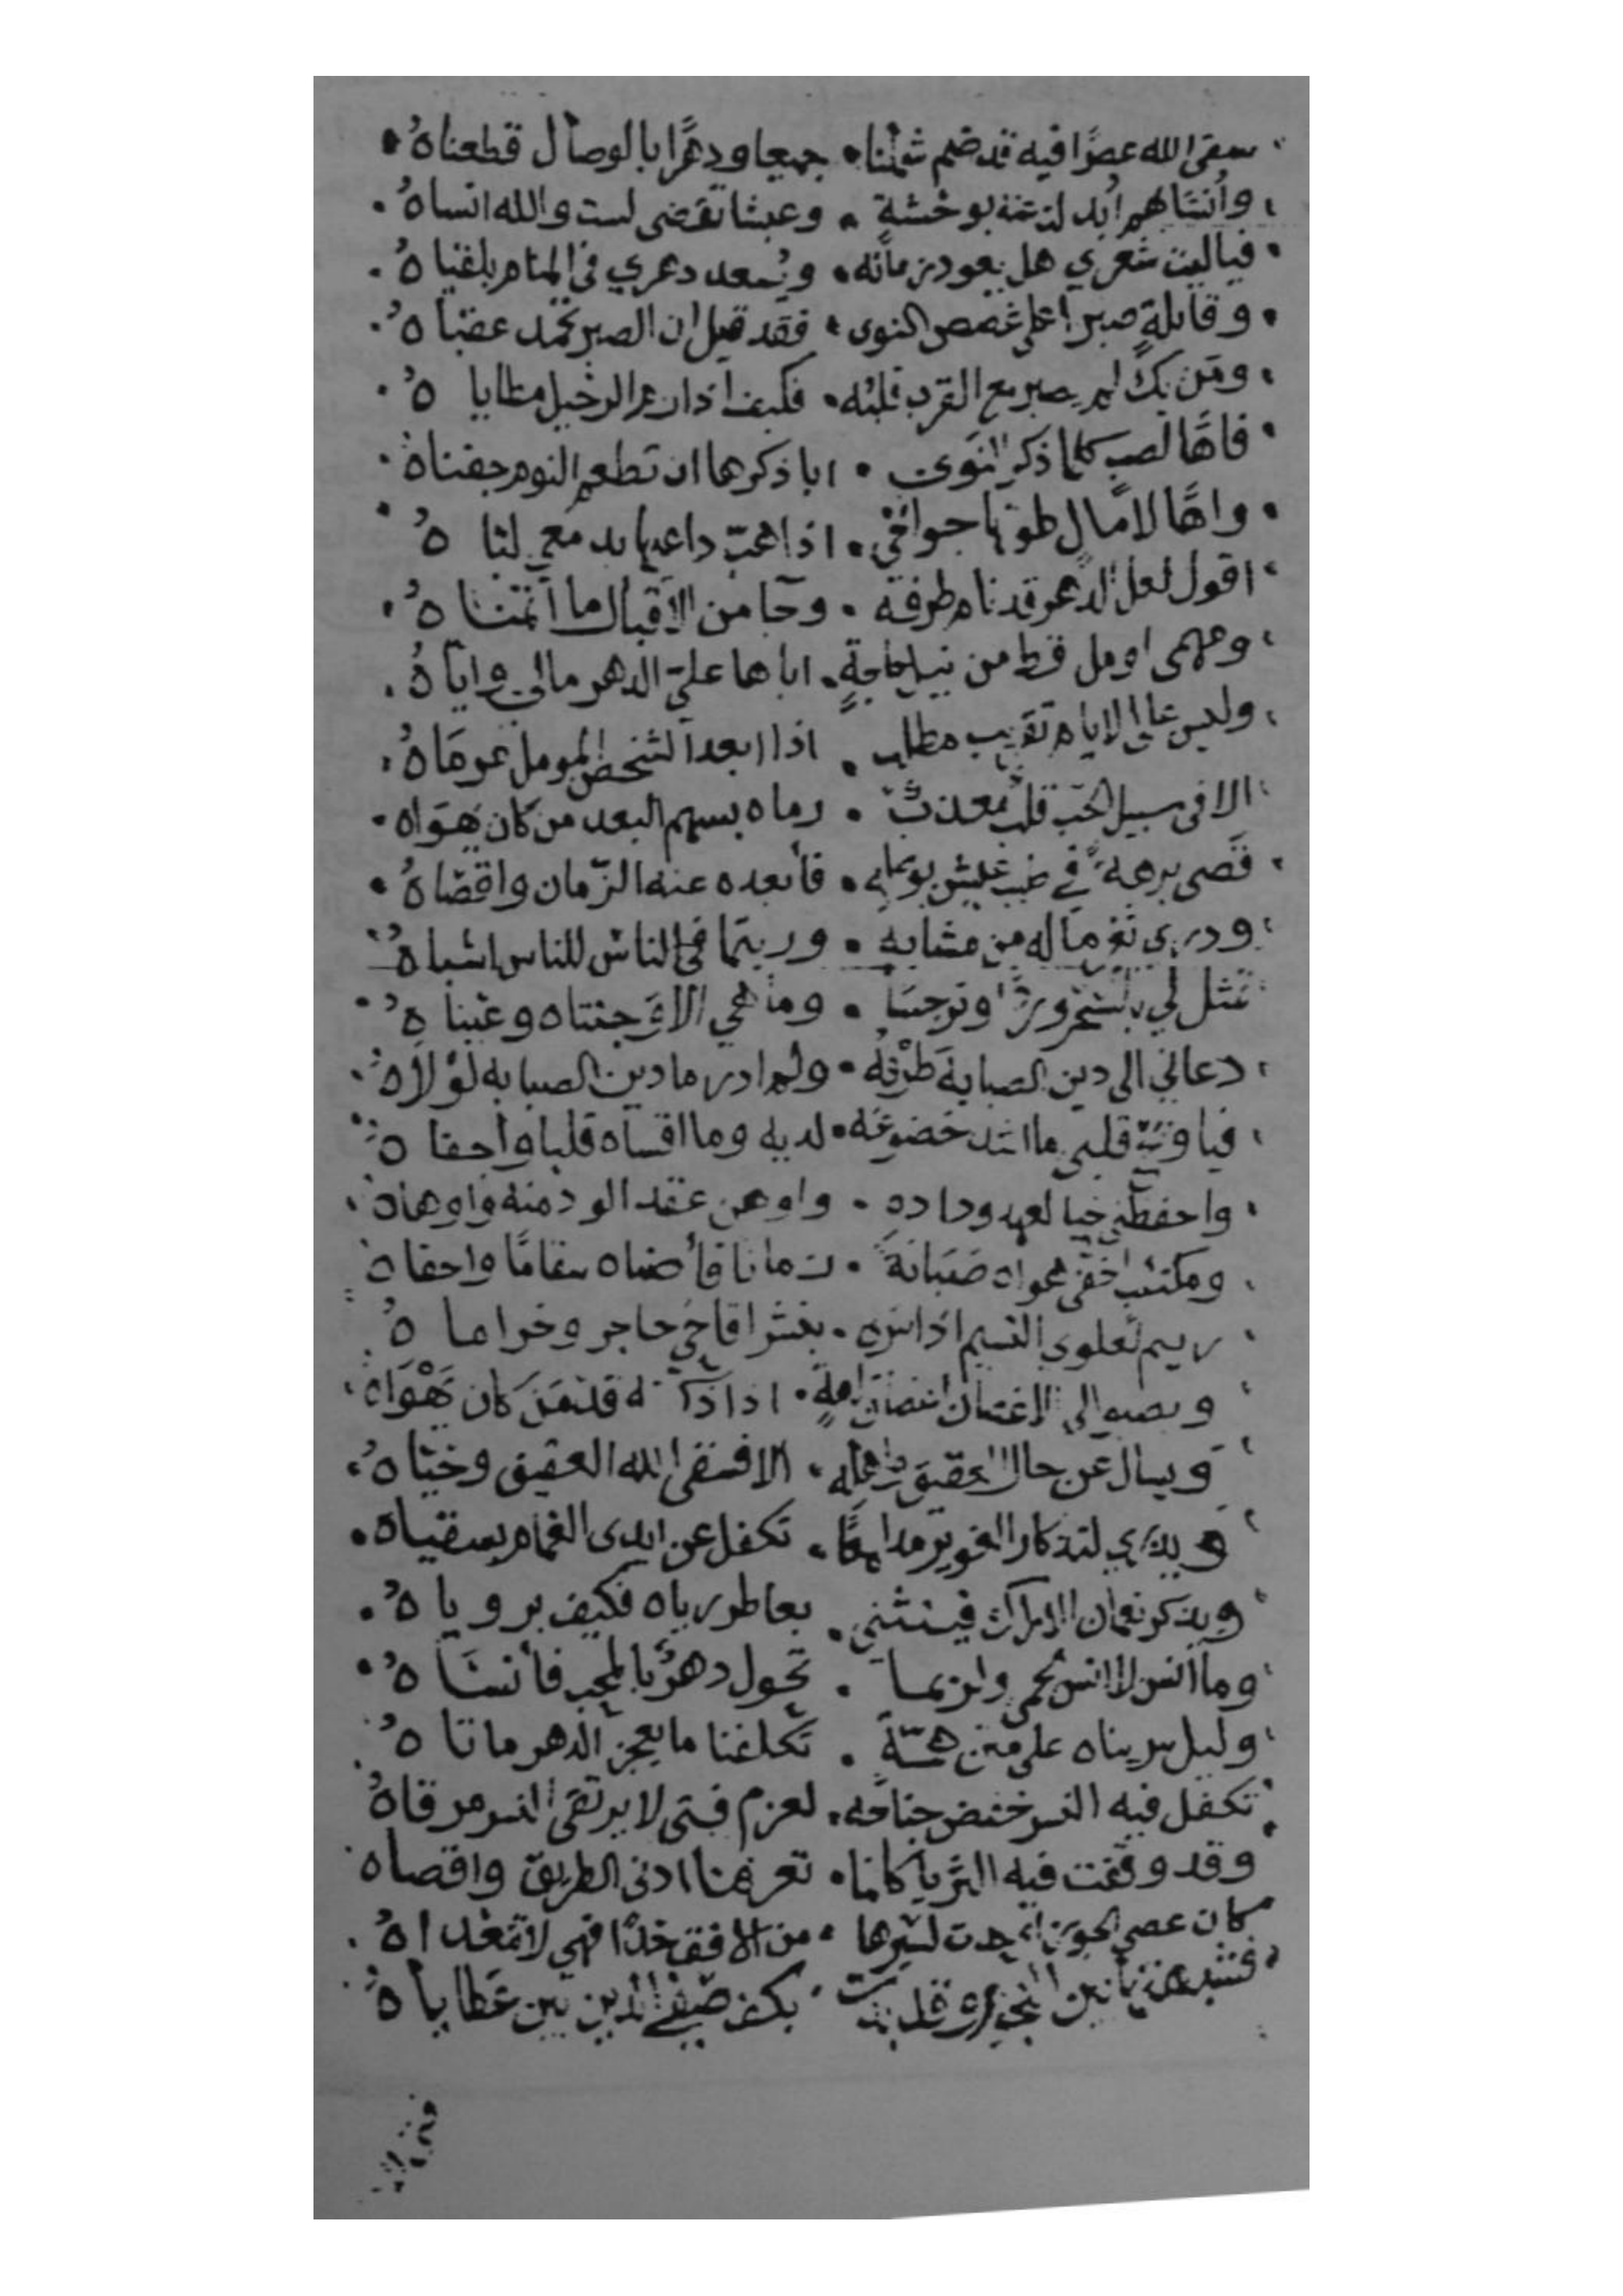 سقى الله عصرًا فيه قد ضم شملنا • جميعا ودهرًا بالوصال قطعناهُ •
وأنسًا لهم أبدلت منه بوحشة • وعيشا تقضى لست والله انساهُ •
• فيا ليت شعري هل يعود زمانه • ويُسعد دهري في المنام بلقياهُ •
• وقائلة صبرا على غصص النوى • فقد قيل ان الصبر تحمد عقباهُ •
ومن يكُ لم يصبر مع القرب قلبُه • فكيف اذا زم الرحيل مطاياهُ •
• فاهًا لصب كلما ذكر النوى • ابا ذكرها ان تطعم النوم جفناهُ •
• واهًا لامال طوتها جوانحي • اذا هبّ داعيها بدمعي لباهُ
اقول لعل الدهر قد نام طرفه • وجا من الاقبال ما أتمناهُ •
ومهمى اومل قط من نيل حاجةٍ • اباها عليّ الدهر مالي واياهُ •
وليس على الايام تقريب مطلب • اذا ابعد الشخص المومل مرماهُ •
الا في سبيل الحب قلب معذبٌ • رماه بسهم البعد من كان يهواه •
قضى برهةً في طيب عيش بوصله • فأبعده عنه الزّمان واقصاهُ •
ودري ثغر ما له من مشابه • وربتما في الناس للناس اشباهُ
تمثل لي وردًا ونرجسًا • وما هي الا وجنتاه وعيناهُ •
دعاني الى دين الصبابة طرفُه • ولم ادر ما دين الصبابه لولاهُ •
فيا ويح قلبي ما اشد خضوعه • لديه وما اقساه قلبا واجفاهُ
واحفظني حبا لعهد وداده • واوهن عقد الود منه واوهاهُ
ومكتئب اخفى هواه صبابةً • زمانا فأضناه سقامًا واخفاهُ
يهيم بعلوي النسيم اذا سرى • بنشر اقاحي حاجر وخزاماهُ
ويصبو الى الاغصان • اذا ذكّرته قد من كان يهواهُ
ويسال عن حال العقيق واهله • الا فسقى الله العقيق وحيّاهُ •
ويذري لتذكار الغوير مدامعًا • تكفل عن ايدى الغمام بسقياهُ •
ويذكر نعمان الاراك فينثني • بعاطر رياه فكيف برؤياهُ •
وما أنس لا انس الحمى وازيما • تحول دهرٌ بالمحب فأنساهُ •
وليل سريناه على متن همّةً • تكلفنا ما يعجز الدهر ماتاهُ
تكفل فيه النسر خفض جناحه • لعزم فتى لا يرتقى النسر مرقاهُ
وقد وقفت فيه الثريا كانما • تعرفنا ادنى الطريق واقصاه
كان عصي الجوزا لسيرها • من الافق خدًا فهي لا تتعداهُ •
فشبهتها بين قد بدت • بكف صفي الدين بين عطاياهُ